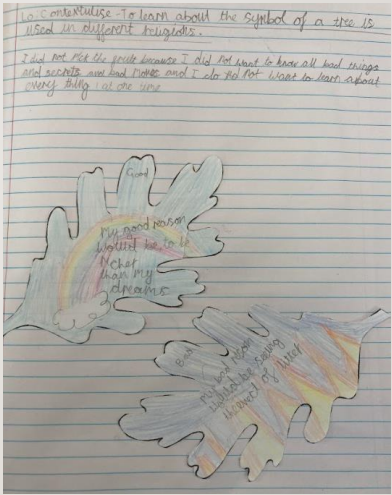 Lo: Contextulise - To learn about the symbol of a tree is
used in different reigons.
I did not pick the because I did not want to know all bad things
and secrets and bad and I do not want to learn about
every thing at one time
Good
My good reason
would be to be
richer
than my
dreams
Bad
My bad reason
would be seeing
the end of